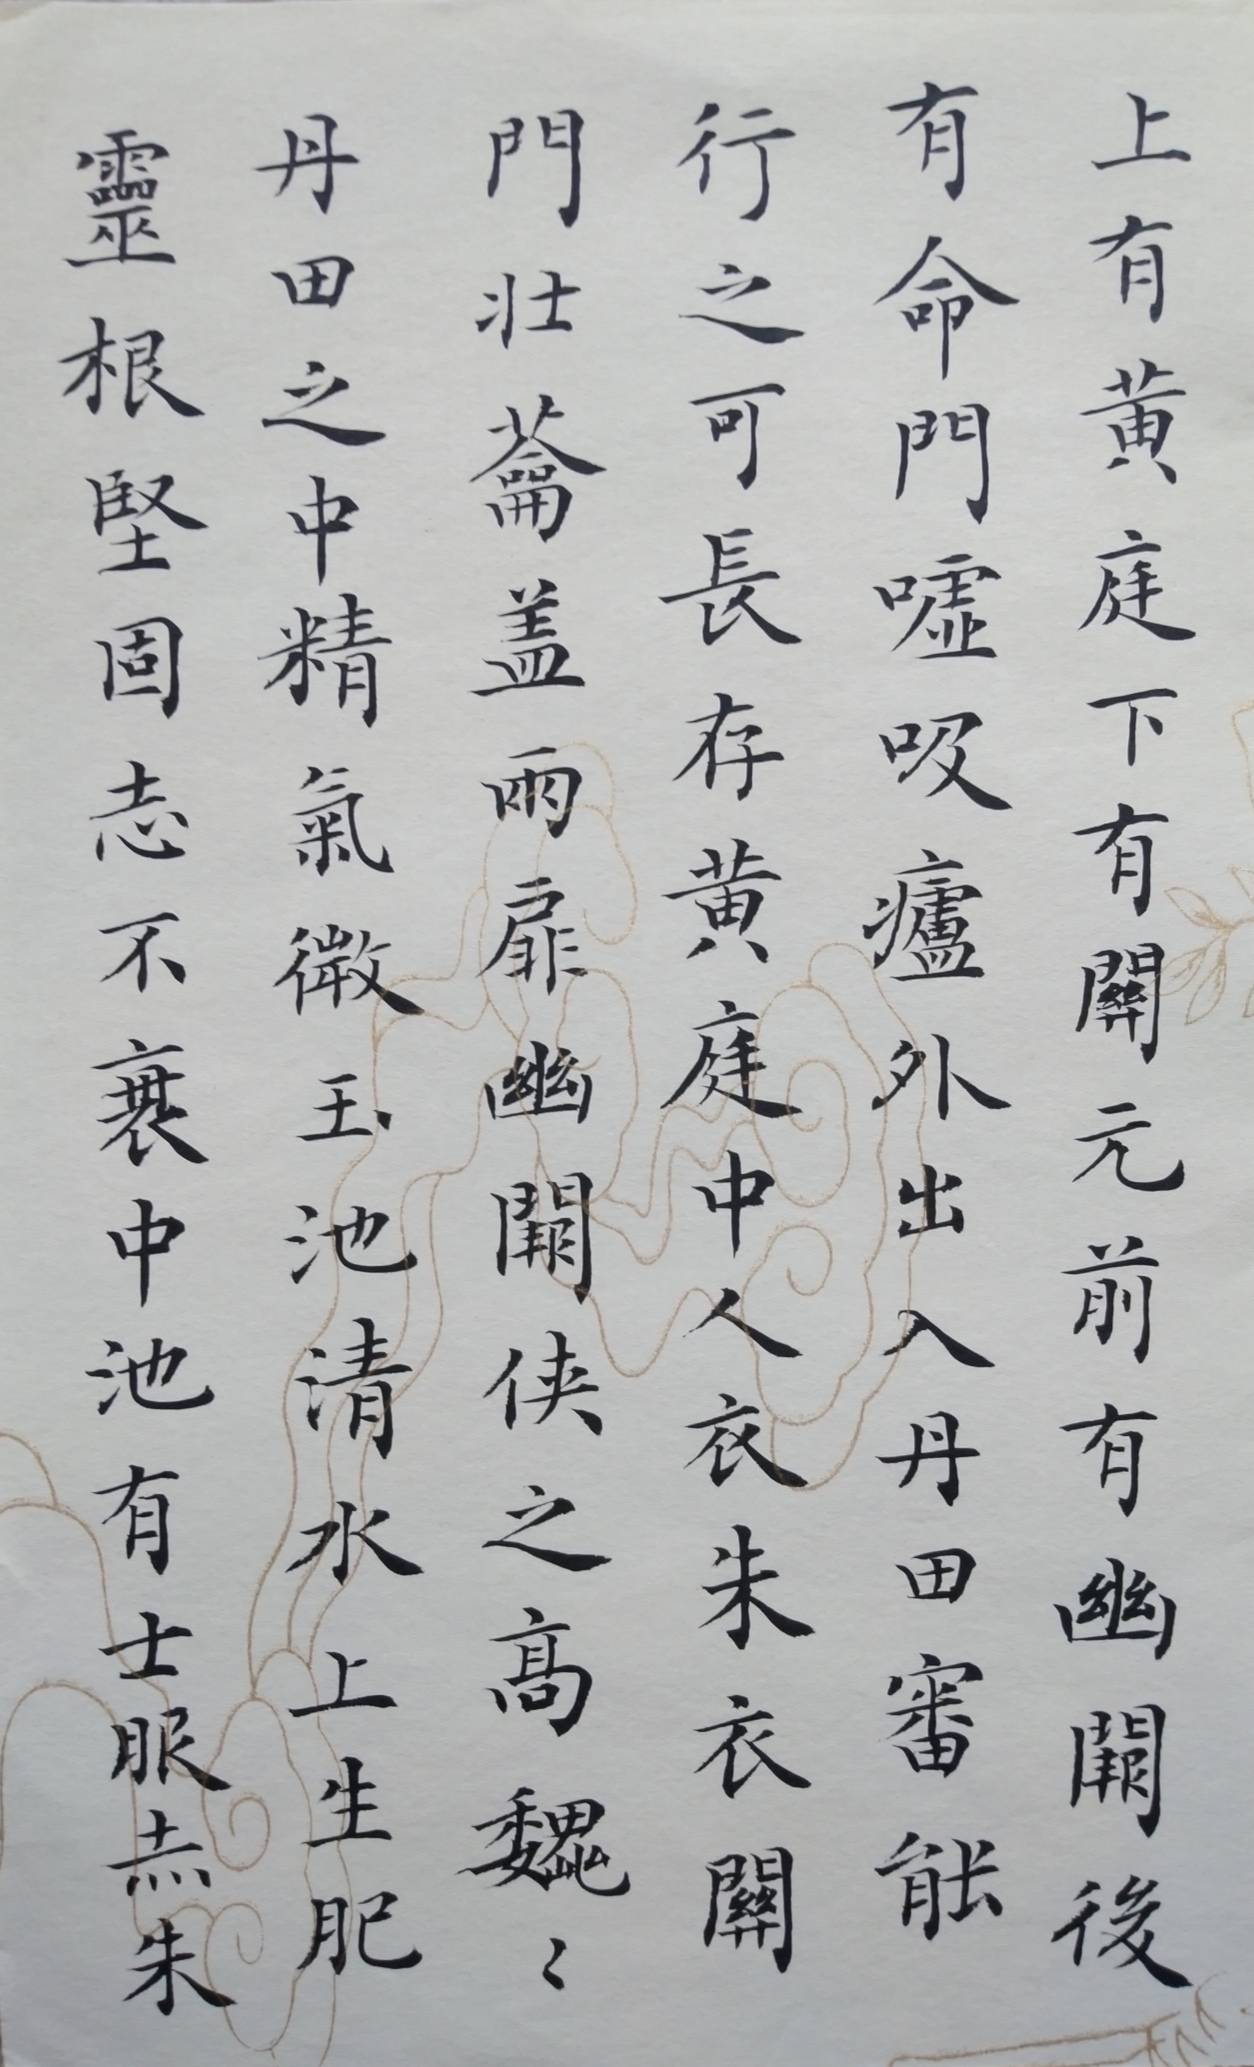 上有黄庭下有關元前有幽闕後
有命門噓吸廬外出入丹田審能
行之可長存黄庭中人衣朱衣關
門壯蘥盖兩扉幽闕俠之高魏〻
丹田之中精氣微玉池清水上生肥
靈根堅固志不衰中池有士服赤朱